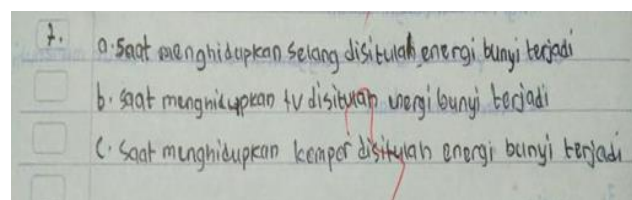 7. a. Saat menghidupkan selang disitulah energi bunyi terjadi
b. saat menghidupkan tv disitulah energi bunyi terjadi
c. Saat menghidupkan kompor disitulah energi bunyi terjadi